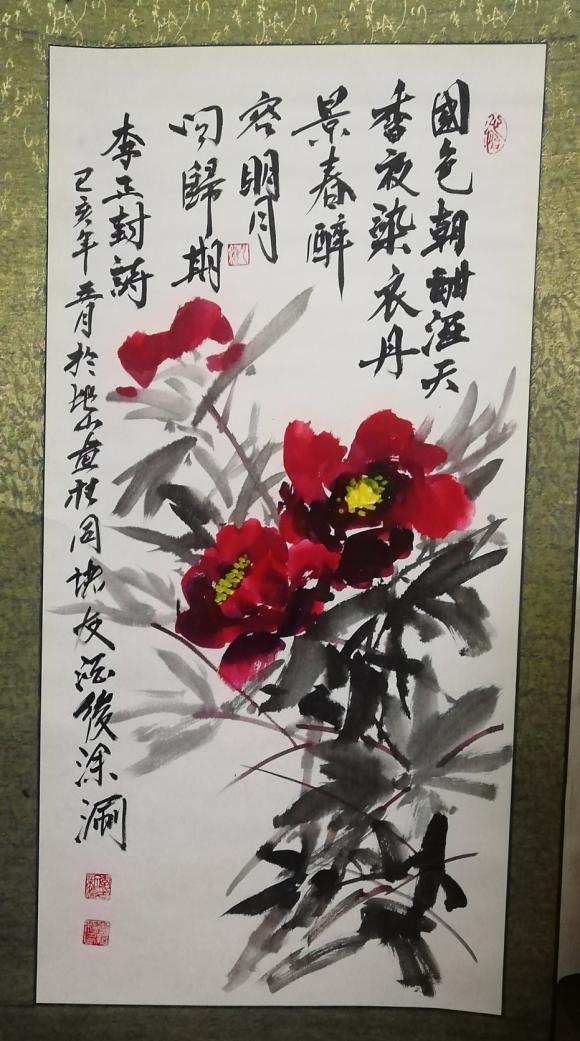 國色朝酣酒天
香夜染衣丹
景春醉
容明月
问歸期
李正封詩
己亥年五月於山畫社同友酒後涂涮